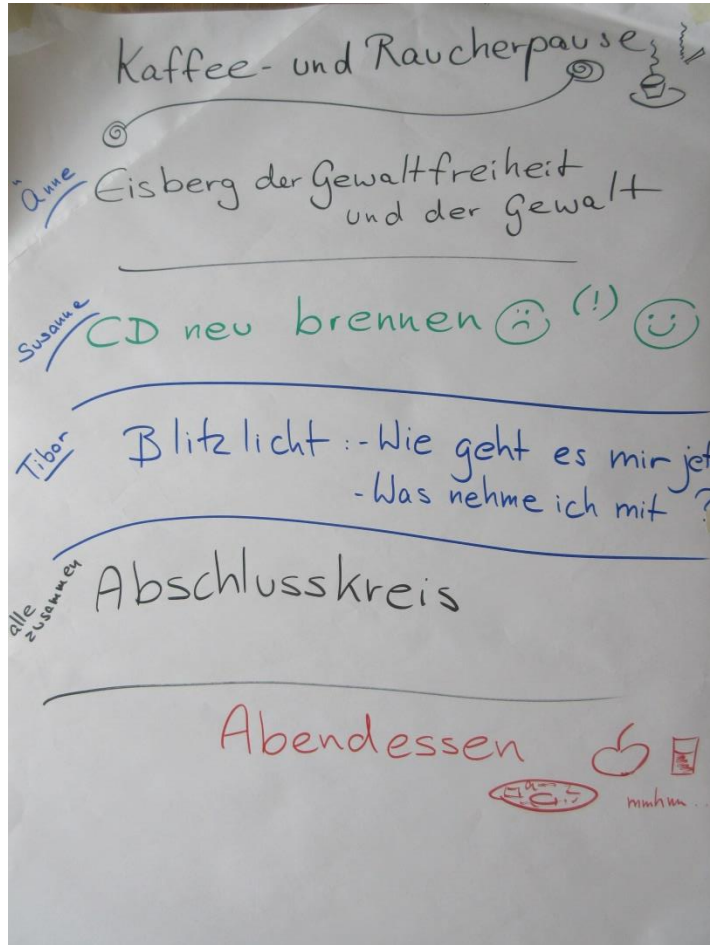 Kaffee- und Raucherpause
Änne
Eisberg der Gewaltfreiheit
und der Gewalt
Susanne
CD neu brennen (!)
Tibor
Blitzlicht :- Wie geht es mir jet
- Was nehme ich mit ?
alle
zusammen
Abschlusskreis
Abendessen
mmhm...